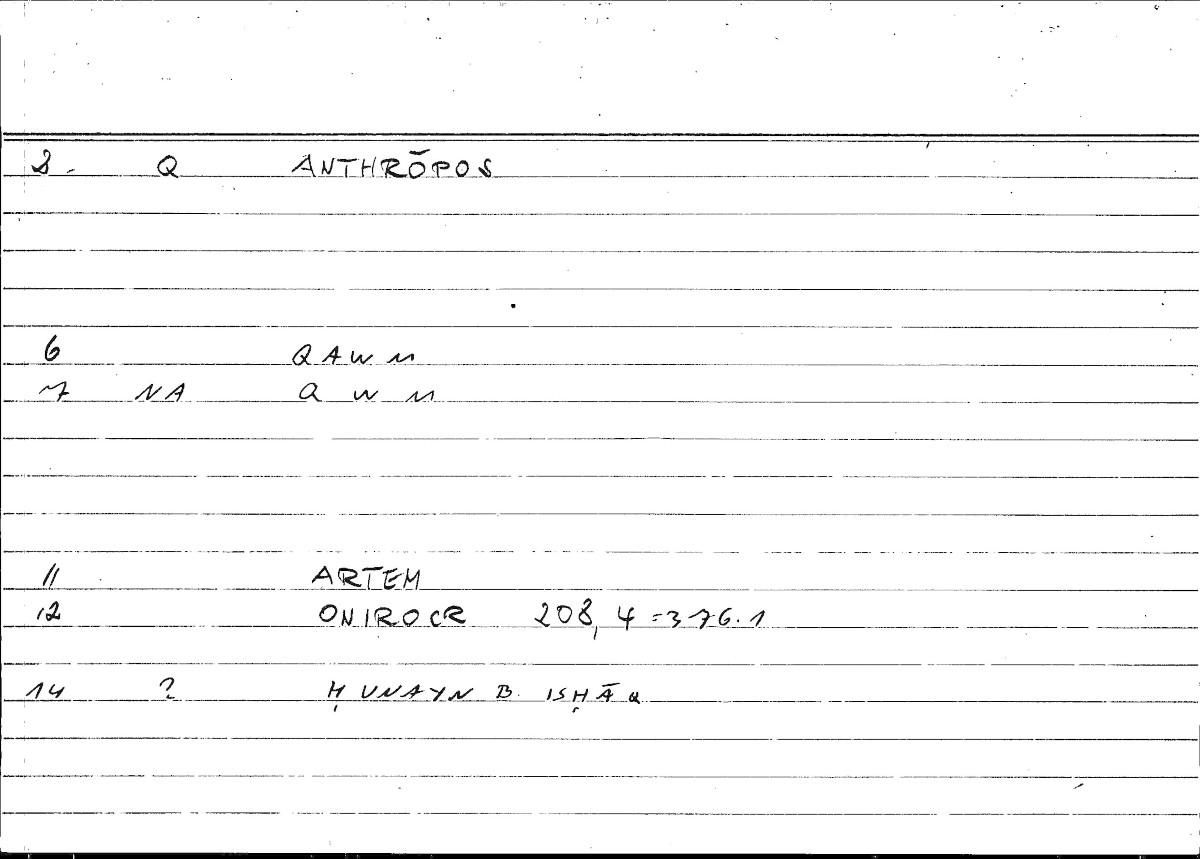 2. Q ANTHRŌPOS
6 QAWM
7 NA Q W M
11 ARTEM
12 ONIROCR 208,4=376.1
14 ? ḤUNAYN B. ISḤĀQ